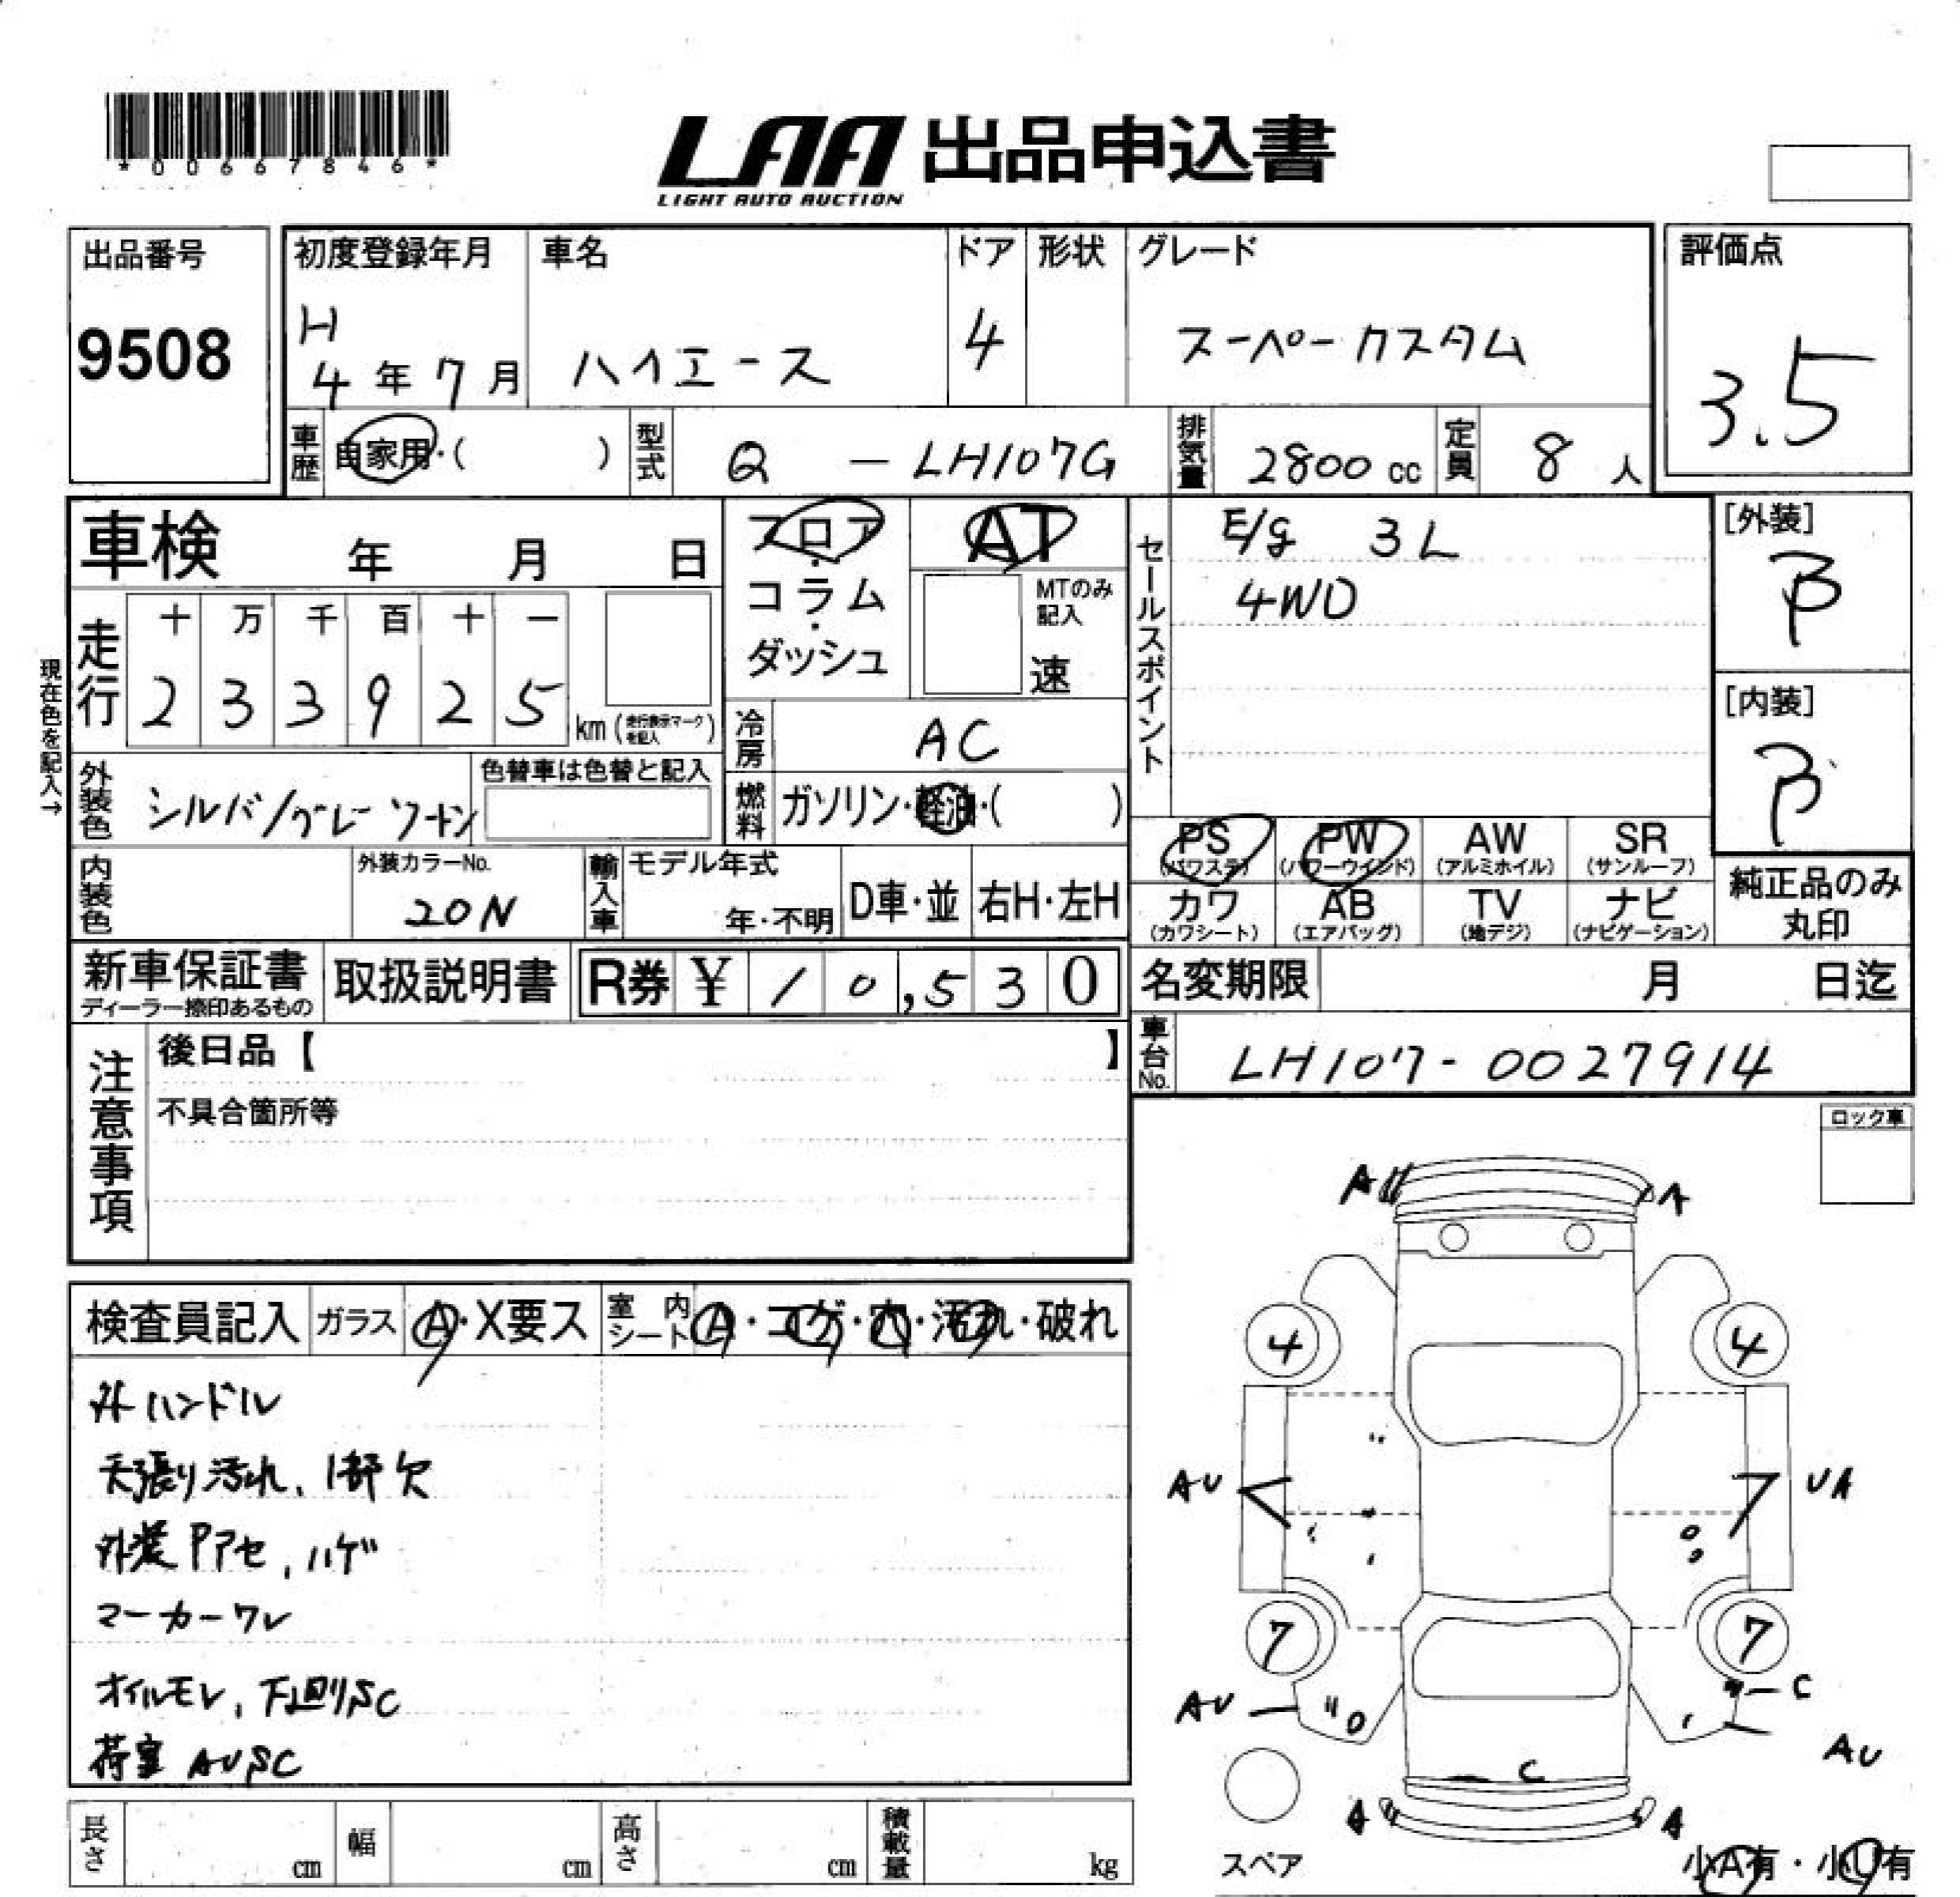 *00667846*
LAA 出品申込書
LIGHT AUTO AUCTION
出品番号
9508
初度登録年月
H
4年7月
車名
ハイエース
ドア
4
形状
グレード
スーペーカスタム
評価点
3.5
車歴 自家用・( )
型式 Q - LH107G
排気量 2800cc
定員 8人
車検 年 月 日
フロア・コラム・ダッシュ
AT
MTのみ
記入
速
セールスポイント
E/g 3L
4WD
[外装]
B
[内装]
B
現在色を記入→
走行
十 万 千 百 十 一
2 3 3 9 2 5 km (走行表示マークを記入)
冷房 AC
燃料 ガソリン・軽油・( )
外装色 シルバ/グレーツートン
色替車は色替と記入
内装色
外装カラーNo.
20N
輸入車
モデル年式
年・不明
D車・並
右H・左H
PS (パワステ)
PW (パワーウインド)
AW (アルミホイル)
SR (サンルーフ)
カワ (カワシート)
AB (エアバッグ)
TV (地デジ)
ナビ (ナビゲーション)
純正品のみ
丸印
新車保証書
ディーラー捺印あるもの
取扱説明書
R券 ¥ 10,530
名変期限 月 日迄
車台No. LH107-0027914
注意事項
後日品【 】
不具合箇所等
ロック車
検査員記入
ガラス A・X要ス
室内シート A・コゲ・穴・汚れ・破れ
外ハンドル
天張り汚れ、1部欠
外装Pアセ、ハゲ
マーカーワレ
オイルモレ、下回りSC
荷室 AUSC
A A
4 4
AU UA
7 7
AU C
AU
C
A A
スペア
小A有・小U有
長さ cm
幅 cm
高さ cm
積載量 kg